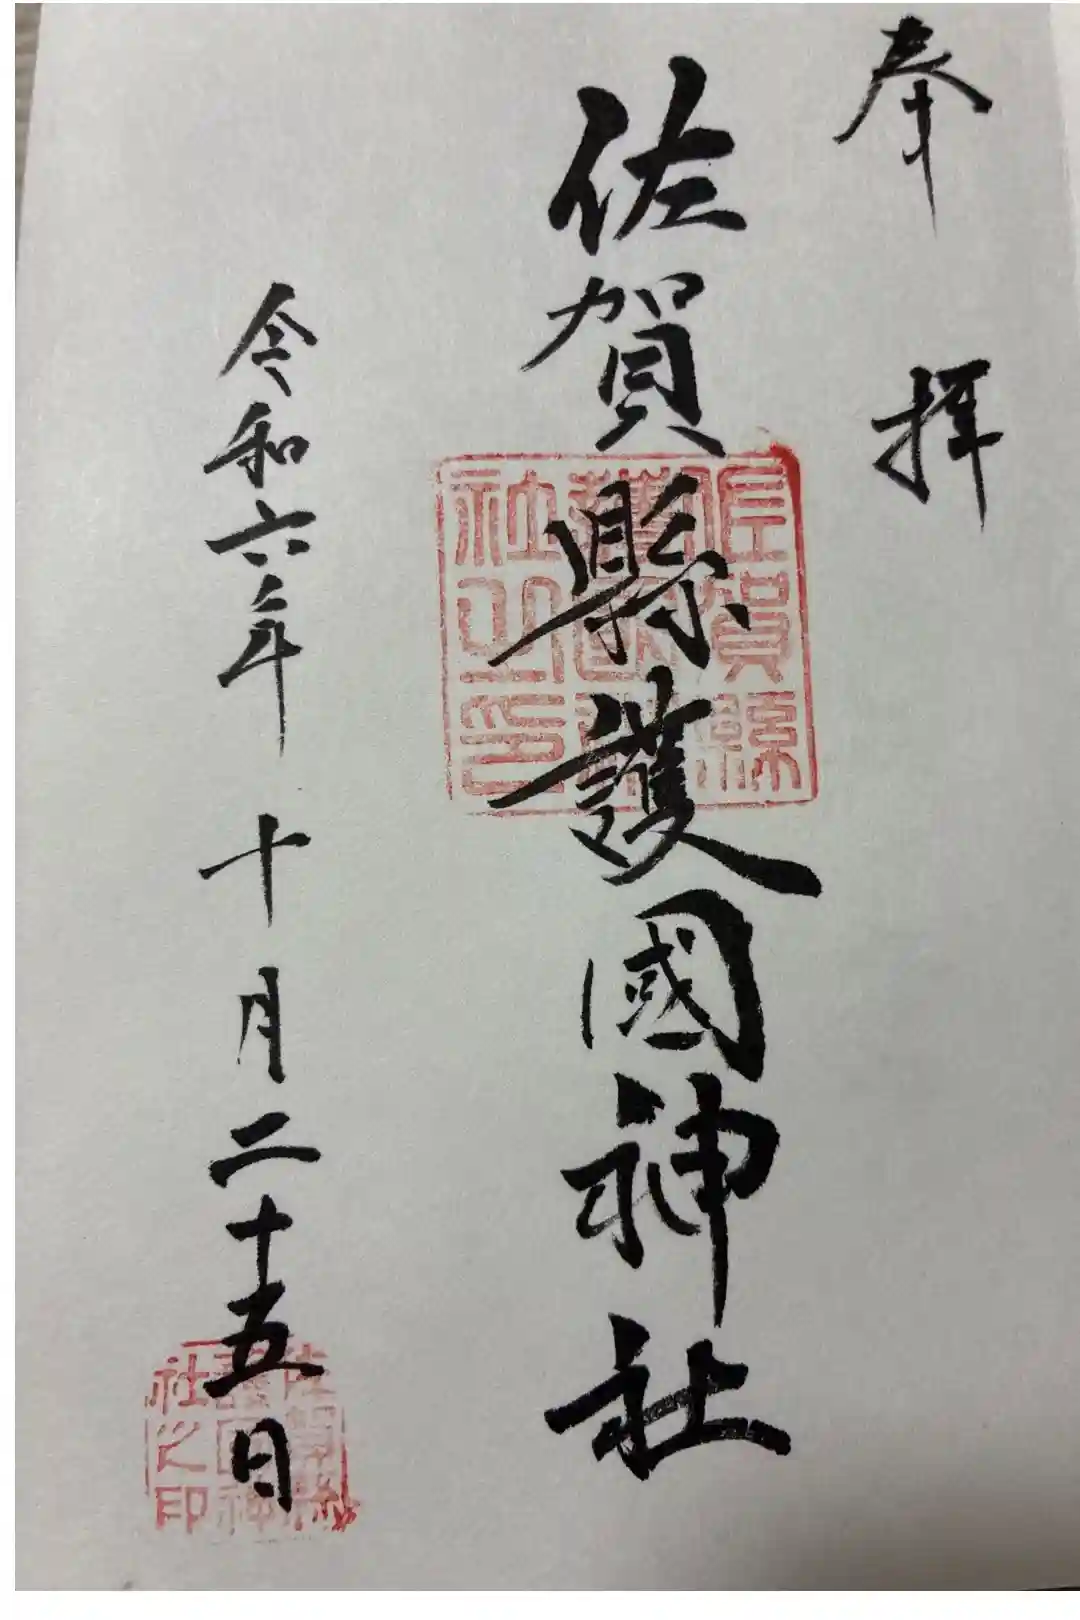 奉拝
佐賀縣護國神社
佐賀縣
護國神
社之印
令和六年十月二十五日
佐賀縣
護国神
社之印